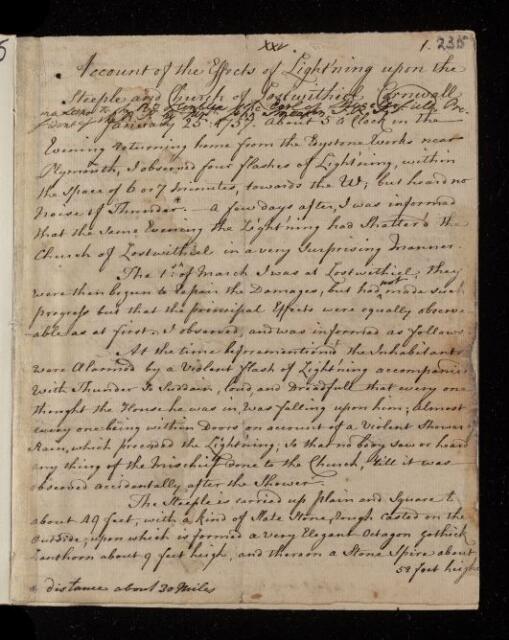 xxv
1. 235
Account of the Effects of Lightning upon the
Steeple and Church of Lostwithiel, Cornwall
in a Letter to the Earl of
January 25. 1757. About 5 o Clock in the
Evening returning home from the Edystone works near
Plymouth, I observed four flashes of Lightning, within
the Space of 6 or 7 minutes, towards the W; but heard no
Noise of Thunder. — A few days after, I was informed
that the Same Evening the Lightning had Shatter'd the
Church of Lostwithiel in a very Surprizing Manner.
The 1st of March I was at Lostwithiel; they
were then begun to repair the Damages, but had not made such
progress but that the principal Effects were equally observe
able as at first. I observed, and was informed as follows
At the time beforementioned the Inhabitants
were Alarmed by a Violent flash of Lightning accompanied
with Thunder So Suddain, loud, and Dreadfull that every one
thought the House he was in, was falling upon him; almost
every one being within Doors on account of a Violent Shower of
Rain, which preceeded the Lightning; So that no body saw or heard
any thing of the Mischief done to the Church, till it was
observed accidentally after the Shower —
The Steeple is carried up plain and Square to
about 49 feet, with a kind of Slate Stone, rough casted on the
Outside; upon which is formed a very Elegant Octagon Gothick
Lanthorn about 9 feet heigh, and thereon a Stone Spire about
52 feet heigh
distance about 30 Miles